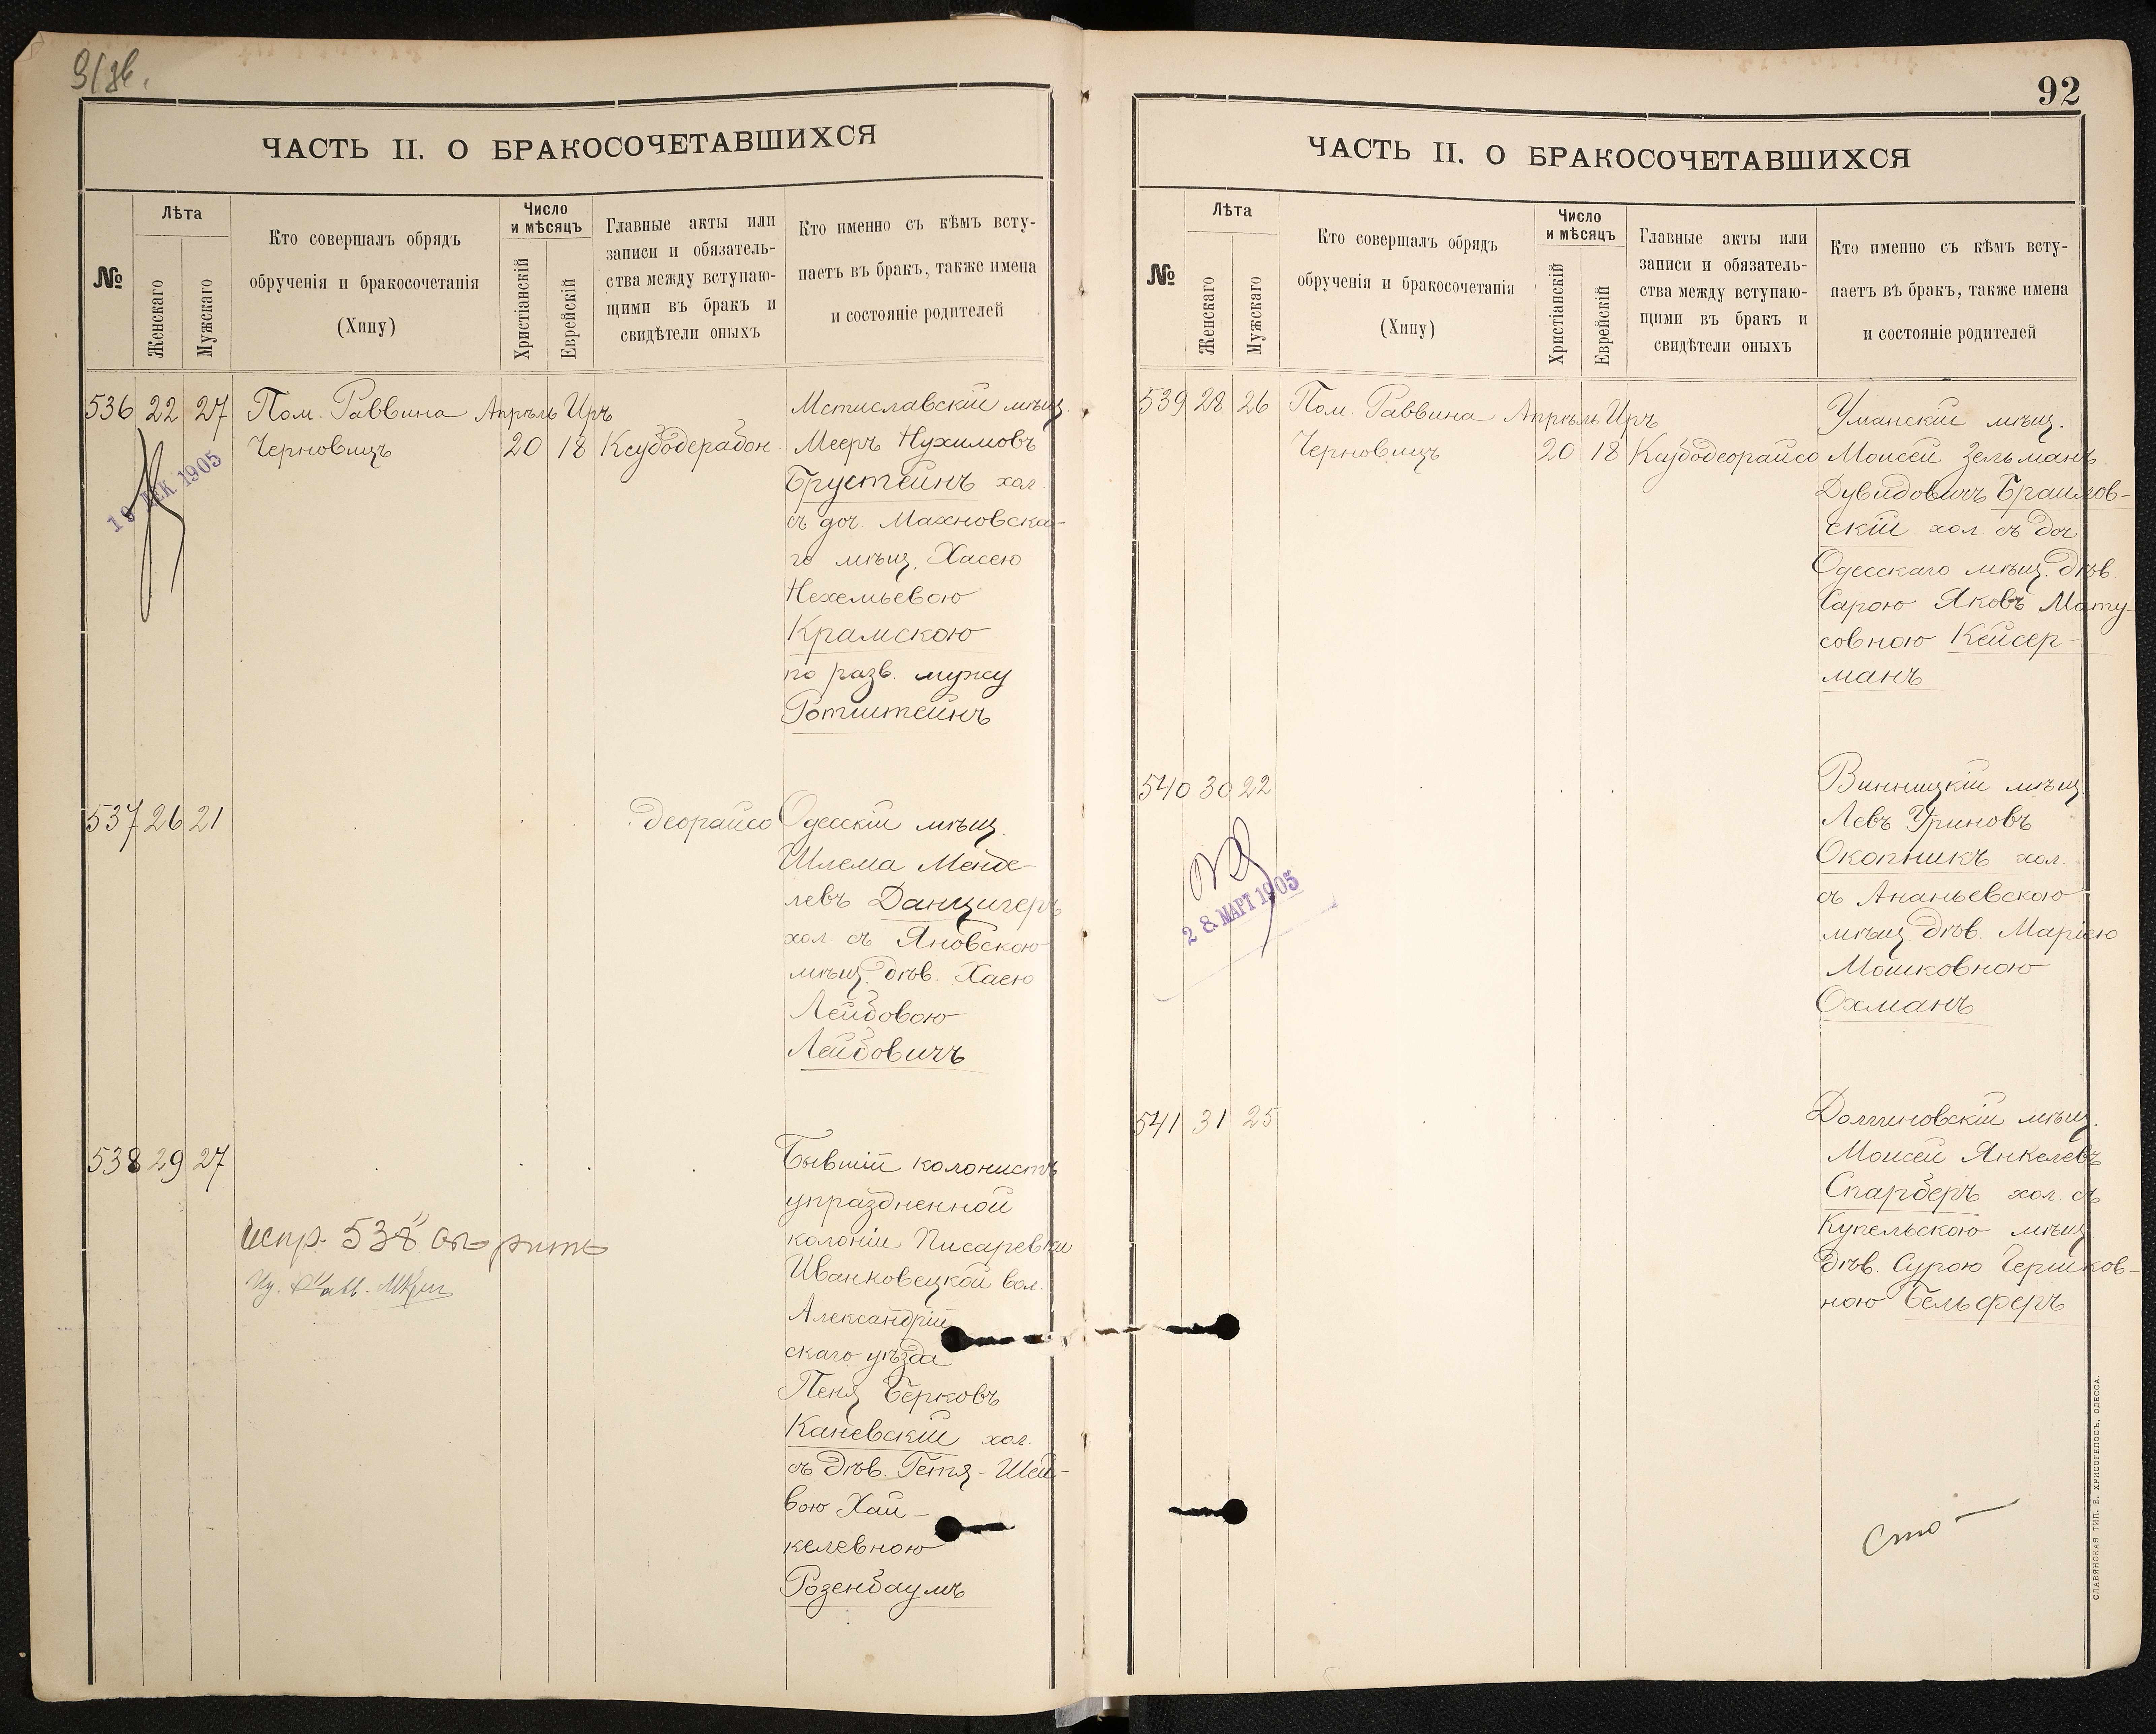 ЧАСТЬ II. О БРАКОСОЧЕТАВШИХСЯ
№
Лѣта
Женскаго
Мужскаго
Кто совершалъ обрядъ
обрученія и бракосочетанія
(Хипу)
Число
и мѣсяцъ
Христіанскій
Еврейскій
Главные акты или
записи и обязатель-
ства между вступаю-
щими въ бракъ и
свидѣтели оныхъ
Кто именно съ кѣмъ всту-
паетъ въ бракъ, также имена
и состояніе родителей
536 22 27 Пом. Раввина Апрѣль Иръ
Черновицъ 20 18 Ксубодерабон
19 ДЕК 1905
Мстиславскій мѣщ.
Мееръ Нухимовъ
Брустейнъ хол.
съ доч. Махновска-
го мѣщ. Хасею
Нехемьевою
Крамскою
по разв. мужу
Ротштейнъ
537 26 21
деорайсо
Одесскій мѣщ.
Шлема Менде-
левъ Данцигеръ
хол. съ Яновскою
мѣщ. дѣв. Хаею
Лейбовою
Лейбовичъ
538 29 27
испр. 538
Бывшій колонистъ
упраздненной
колоніи Писаревки
Иванковецкой вол.
Александрій
скаго уѣзда
Пеня Берковъ
Каневскій хол.
съ дѣв. Гетя-Шей-
вою Хай-
келевною
Розенбаумъ
92
ЧАСТЬ II. О БРАКОСОЧЕТАВШИХСЯ
№
Лѣта
Женскаго
Мужскаго
Кто совершалъ обрядъ
обрученія и бракосочетанія
(Хипу)
Число
и мѣсяцъ
Христіанскій
Еврейскій
Главные акты или
записи и обязатель-
ства между вступаю-
щими въ бракъ и
свидѣтели оныхъ
Кто именно съ кѣмъ всту-
паетъ въ бракъ, также имена
и состояніе родителей
539 28 26 Пом. Раввина Апрѣль Иръ
Черновицъ 20 18 Ксубодеорайсо
Уманскій мѣщ.
Моисей Зельманъ
Дувидовичъ Браилов-
скій хол. съ доч
Одесскаго мѣщ. дѣв.
Сарою Яковъ Мату-
совною Кейсер-
манъ
540 30 22
28 МАРТ 1905
Винницкій мѣщ.
Левъ Уриновъ
Окопникъ хол.
съ Ананьевскою
мѣщ. дѣв. Маріею
Мошковною
Охманъ
541 31 25
Долгиновскій мѣщ.
Моисей Янкелевъ
Спарберъ хол. съ
Купельскою мѣщ
дѣв. Сурою Гершков-
ною Бельферъ
СЛАВЯНСКАЯ ТИП. Е. ХРИСОГЕЛОСЪ, ОДЕССА.